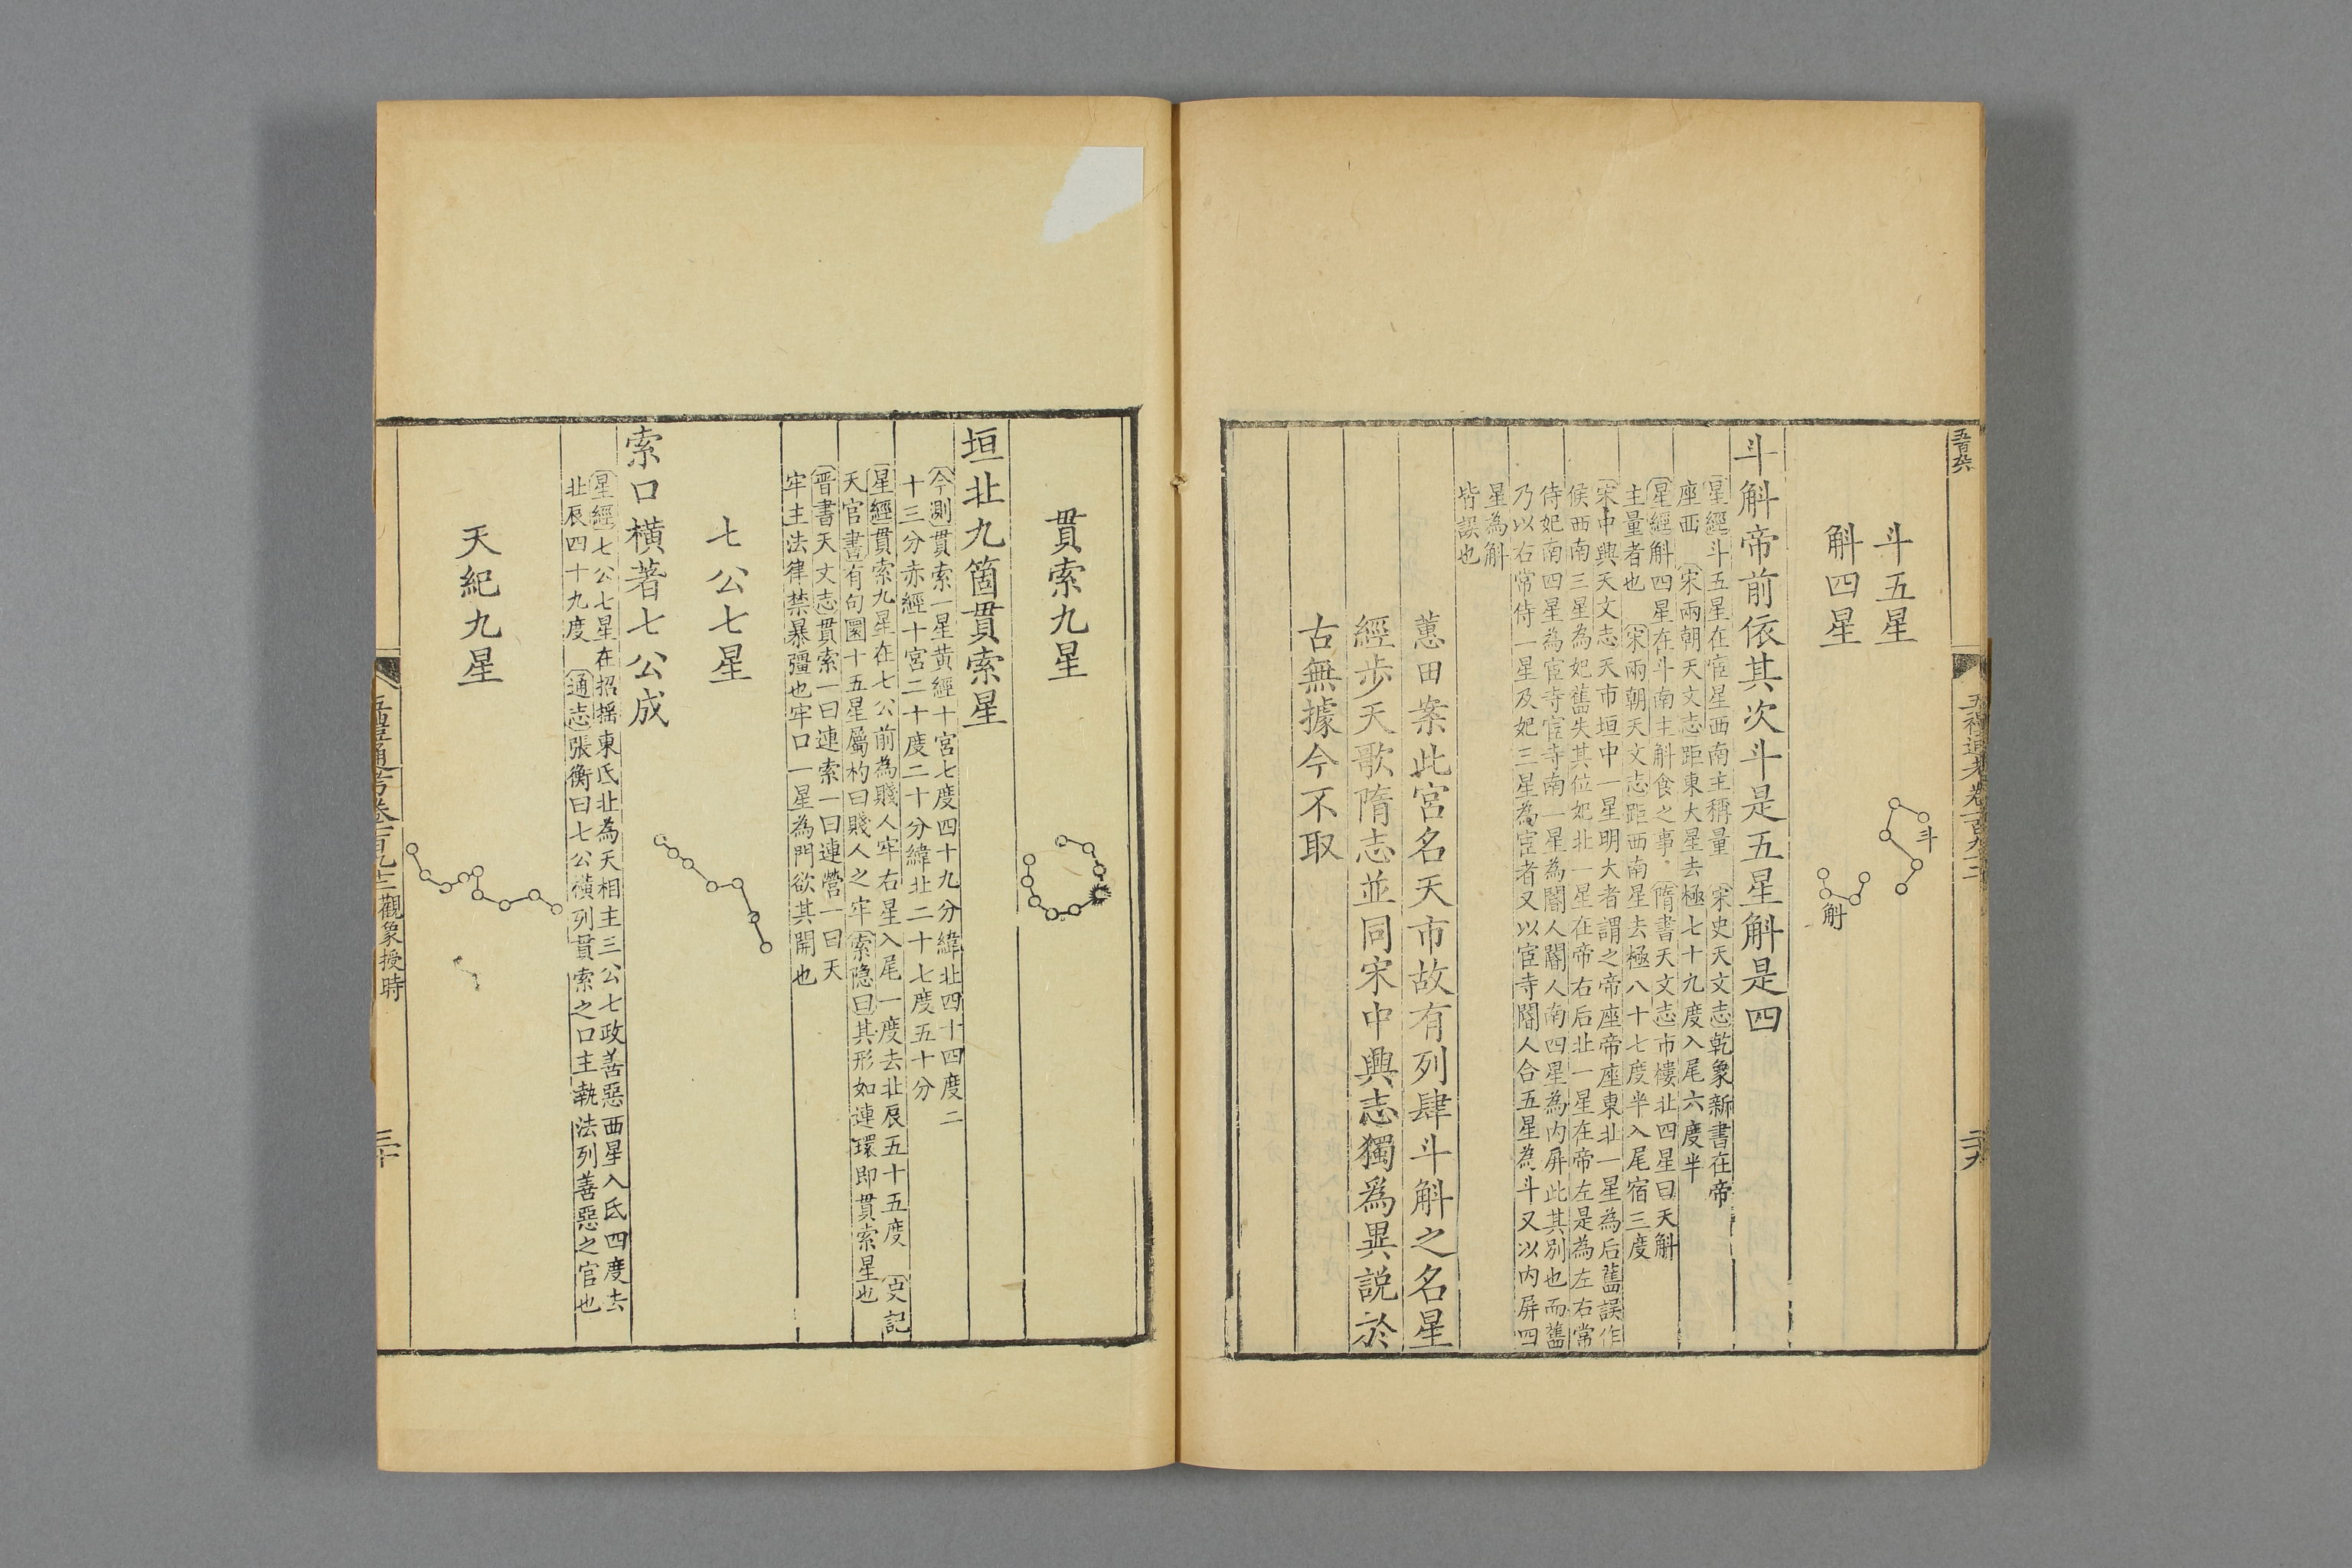 五禮通考卷一百九十三
二十九
斗五星
斛四星
斗
斛
斗斛帝前依其次斗是五星斛是四
星經斗五星在宦星西南主稱量 宋史天文志乾象新書在帝
座西 宋兩朝天文志距東大星去極七十九度入尾六度半
星經斛四星在斗南主斛食之事 隋書天文志市樓北四星曰天斛
主量者也 宋兩朝天文志距西南星去極八十七度半入尾宿三度
宋中興天文志天市垣中一星明大者謂之帝座帝座東北一星為后舊誤作
候西南三星為妃舊失其位妃北一星在帝右后北一星在帝左是為左右常
侍妃南四星為宦寺宦寺南一星為閽人閽人南四星為內屏此其別也而舊
乃以右常侍一星及妃三星為宦者又以宦寺閽人合五星為斗又以內屏四
星為斛
皆誤也
蕙田案此宮名天市故有列肆斗斛之名星
經步天歌隋志並同宋中興志獨爲異説於
古無據今不取
貫索九星
垣北九箇貫索星
今測貫索一星黃經十宮七度四十九分緯北四十四度二
十三分赤經十宮二十度二十分緯北二十七度五十分
星經貫索九星在七公前為賤人牢右星入尾一度去北辰五十五度 史記
天官書有句圜十五星屬杓曰賤人之牢索隱曰其形如連環即貫索星也
晉書天文志貫索一曰連索一曰連營一曰天
牢主法律禁暴彊也牢口一星為門欲其開也
七公七星
索口橫著七公成
星經七公七星在招搖東氐北為天相主三公七政善惡西星入氐四度去
北辰四十九度 通志張衡曰七公橫列貫索之口主執法列善惡之官也
天紀九星
五禮通考卷一百九十三觀象授時
三十